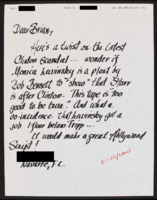 Dear Brian,
Here's a twist on the latest
Clinton Scandal... wonder if
Monica Lewinsky is a plant by
Bob Bennett to "show" that Starr
is after Clinton. This tape is "too
good to be true." And what a
co-incidence that Lewinsky got a
job 1 floor below Tripp...
It would make a great Hollywood
Script!
Navarre, FL